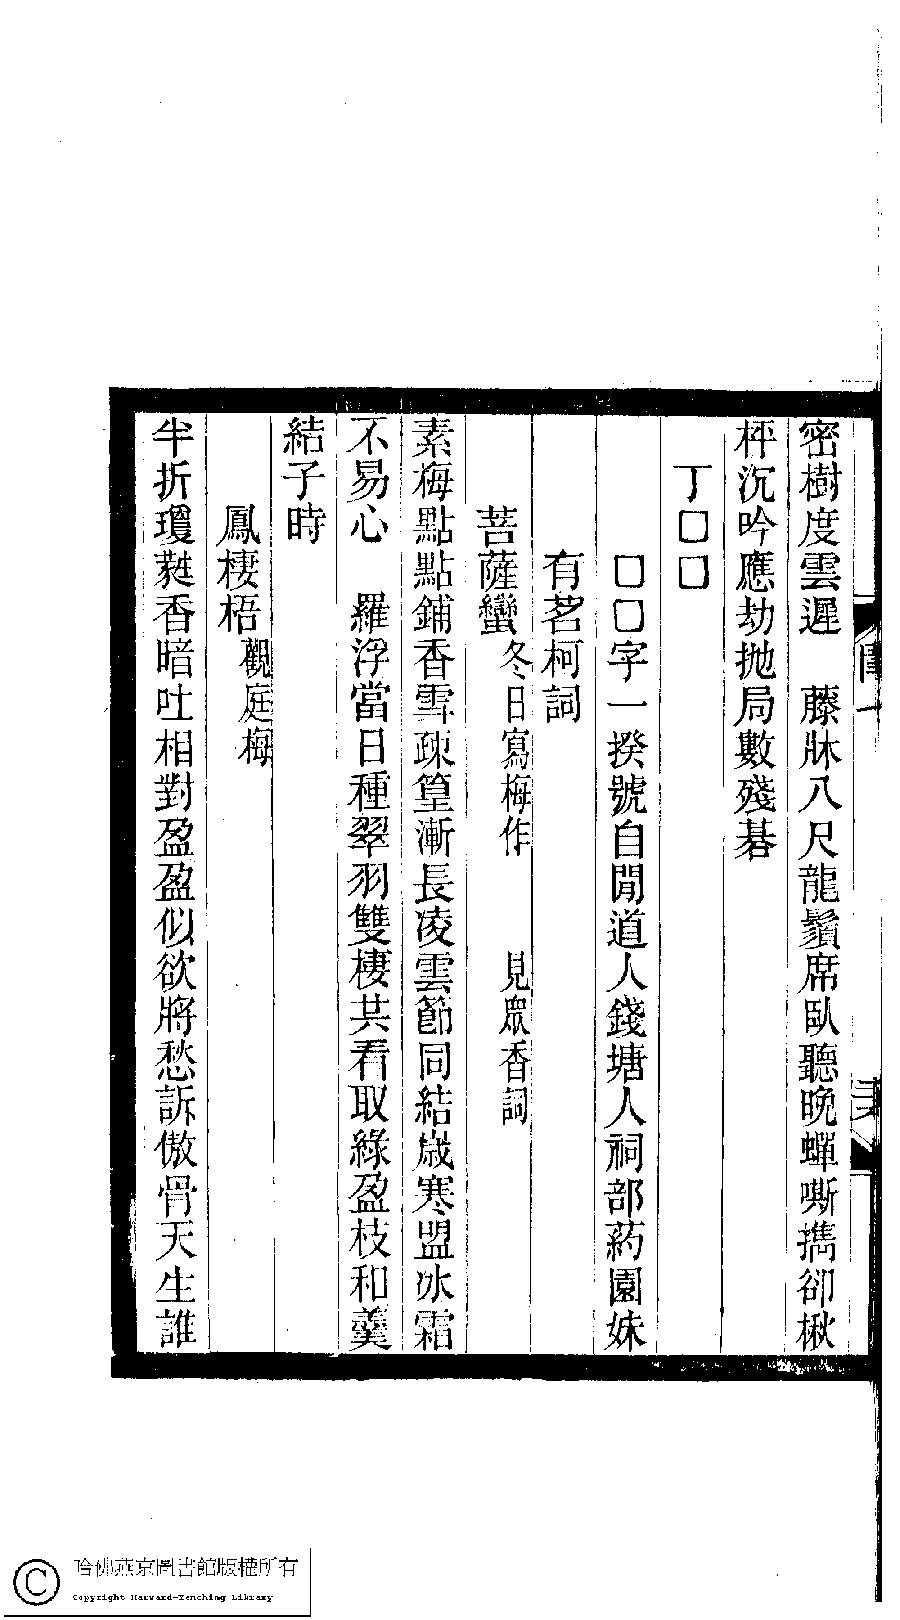 密樹度雲遲　藤牀八尺龍鬚席臥聽晚蟬嘶擕卻楸
枰沉吟應劫拋局數殘碁
丁□□
□□字一揆號自閒道人錢塘人祠部葯園妹
有茗柯詞
菩薩蠻冬日寫梅作　見眾香詞
素梅點點鋪香雪疎篁漸長凌雲節同結歲寒盟冰霜
不易心　羅浮當日種翠羽雙棲共看取綠盈枝和羹
結子時
鳳棲梧觀庭梅
半折瓊蕤香暗吐相對盈盈似欲將愁訴傲骨天生誰
哈佛燕京圖書館版權所有
Copyright Harvard-Yenching Library